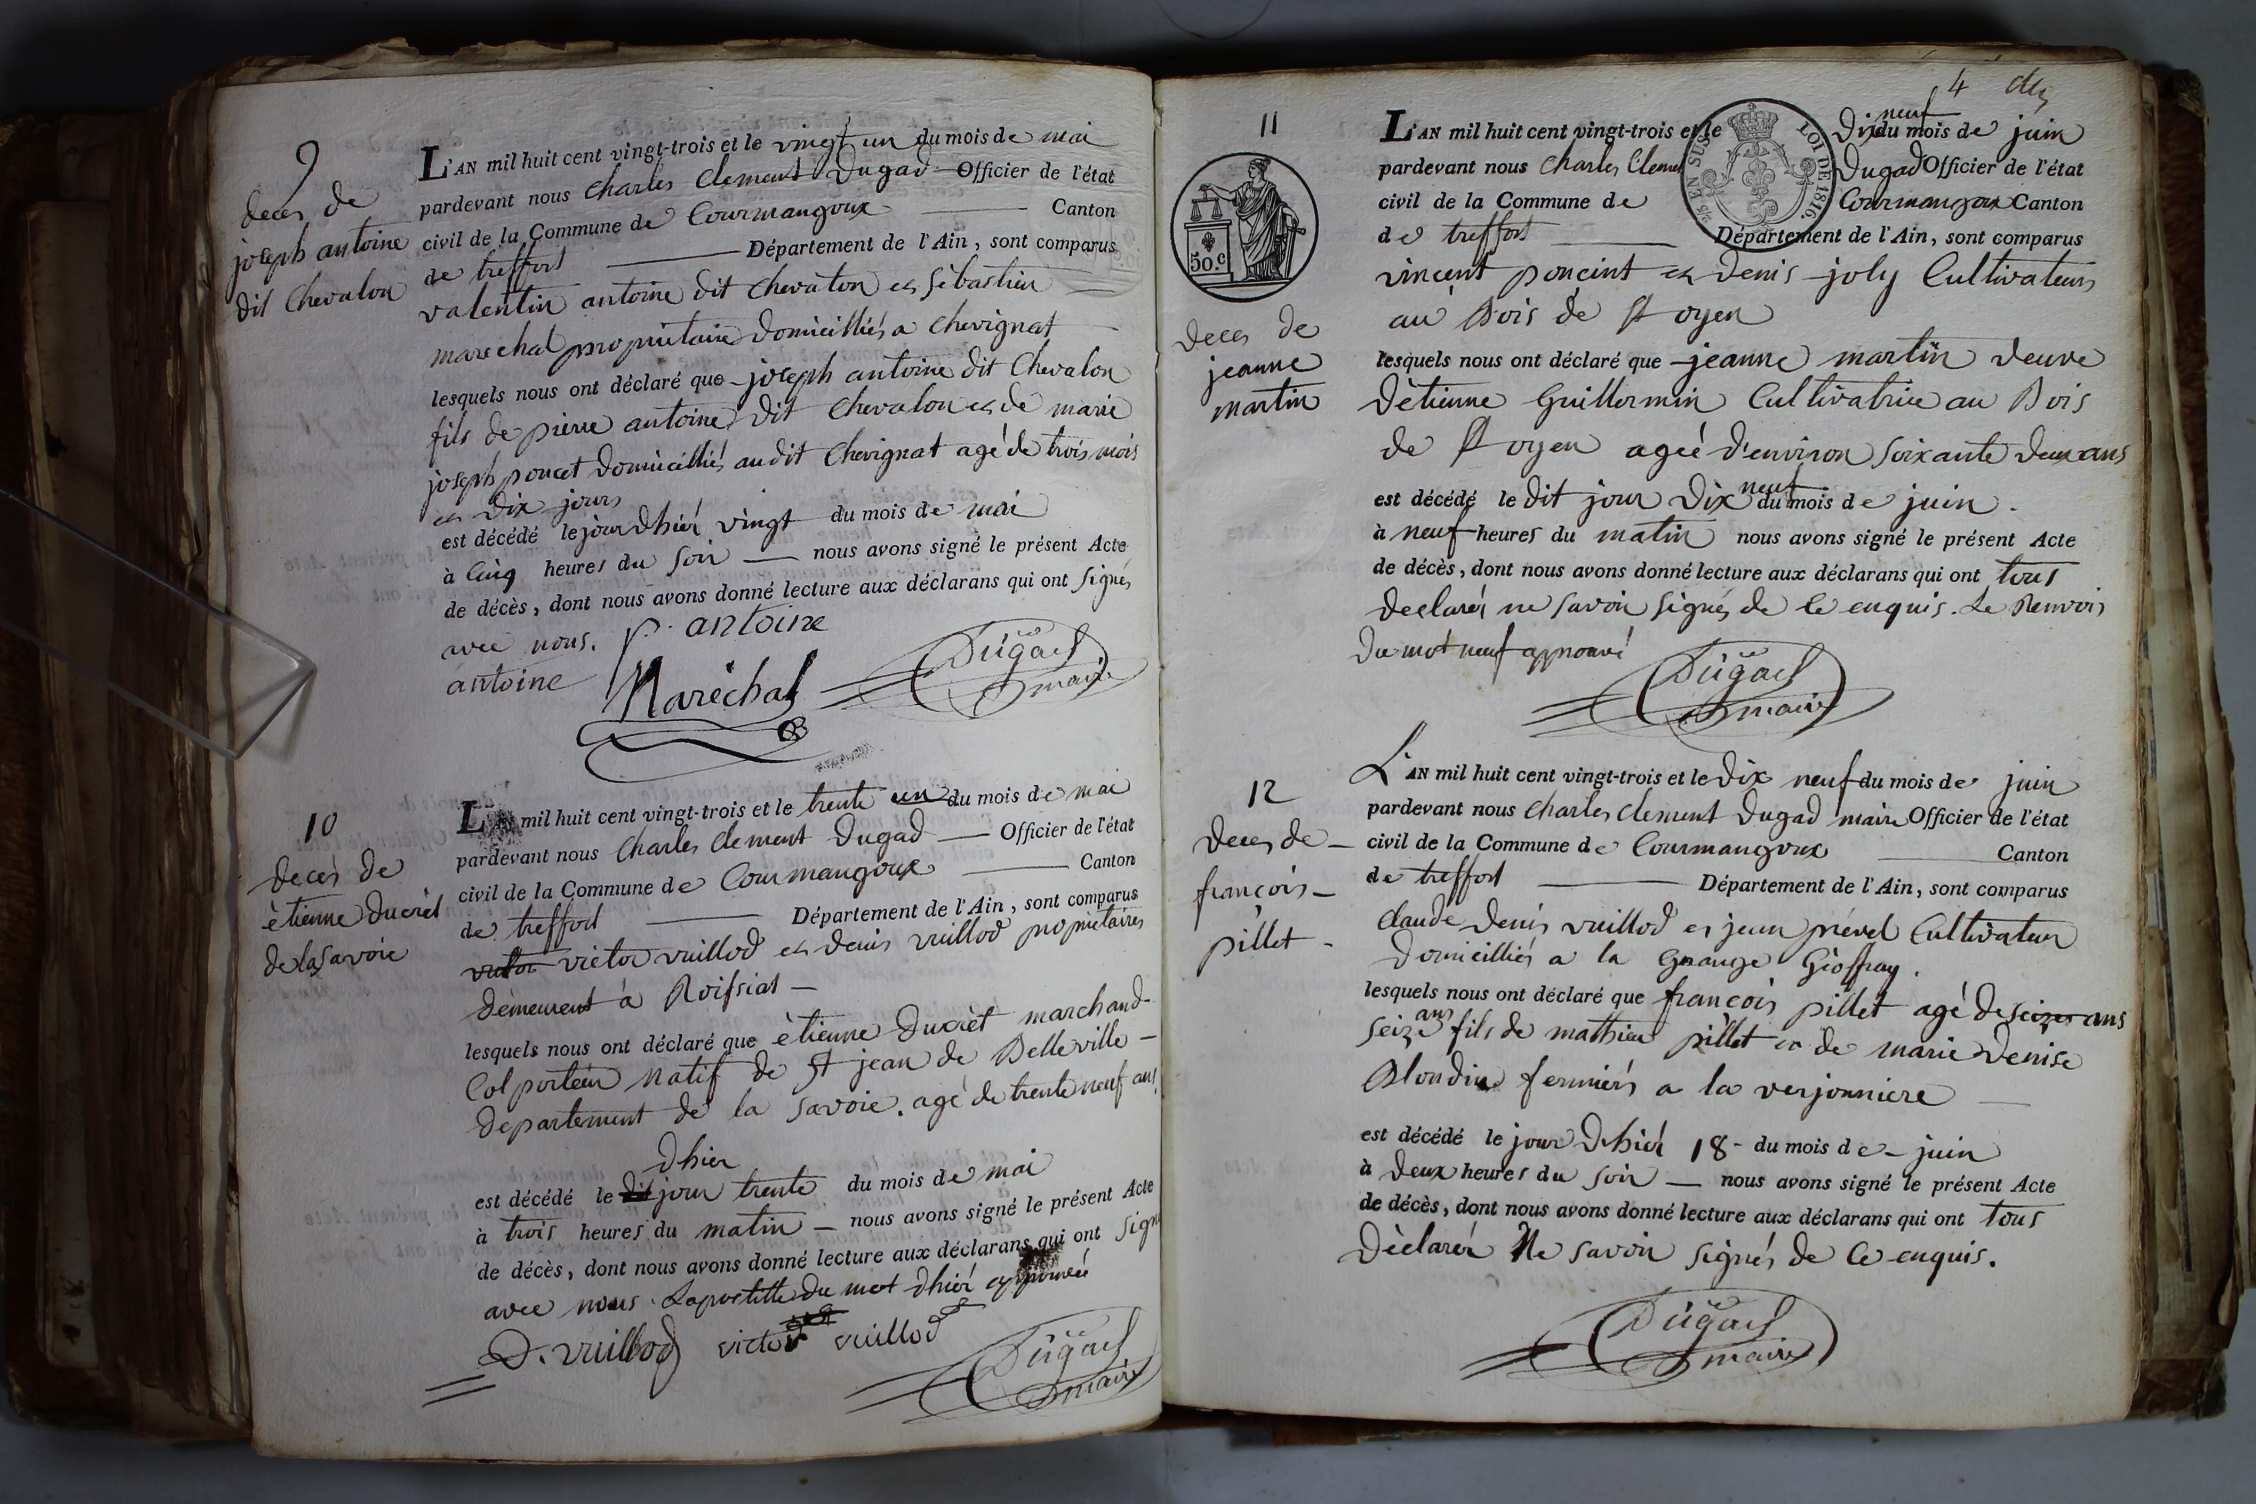 9
deces de
joseph antoine
dit chevalon
L'AN mil huit cent vingt-trois et le vingt un du mois de mai
pardevant nous Charles Clement Dugad Officier de l'état
civil de la Commune de Courmangoux Canton
de treffort Département de l'Ain, sont comparus
valentin antoine dit chevalon et sébastien
marechal propriétaire domicilliés a chevignat
lesquels nous ont déclaré que joseph antoine dit Chevalon
fils de pierre antoine dit chevalon et de marie
joseph poncet domicilliés audit Chevignat agé de trois mois
et dix jours
est décédé le jour dhiér vingt du mois de mai
à Cinq heures du soir nous avons signé le présent Acte
de décès, dont nous avons donné lecture aux déclarans qui ont signés
avec nous. p. antoine
antoine Maréchal Dugad maire
10
decés de
ètienne Ducrèt
de la Savoie
L'AN mil huit cent vingt-trois et le trente un du mois de mai
pardevant nous Charles Clement Dugad Officier de l'état
civil de la Commune de Courmangoux Canton
de treffort Département de l'Ain, sont comparus
victor victor vuillod et denis vuillod propriétaires
dèmeurent à Roissiat
lesquels nous ont déclaré que ètienne Ducrèt marchand
Colporteur natif de St jean de Belleville
departement de la Savoie. agé de trente neuf ans
dhier
est décédé le dit jour trente du mois de mai
à trois heures du matin nous avons signé le présent Acte
de décès, dont nous avons donné lecture aux déclarans qui ont sign
avec nous. Lapostille du mot dhiér approuvée
D. vuillod victor vuillod Dugad maire
4
11
EN SUS LOI DE 1816.
50.c
deces de
jeanne
martin
L'AN mil huit cent vingt-trois et le Dix neuf du mois de juin
pardevant nous Charles Clement Dugad Officier de l'état
civil de la Commune de Courmangoux Canton
de treffort Département de l'Ain, sont comparus
vincent poncint et denis joly Cultivateurs
au Bois de St oyen
lesquels nous ont déclaré que jeanne martin veuve
Dètienne Guillermin Cultivatrice au Bois
de St oyen agée d'environ soixante deux ans
est décédé le dit jour dix neuf du mois de juin.
à neuf heures du matin nous avons signé le présent Acte
de décès, dont nous avons donné lecture aux déclarans qui ont tous
declarés ne savoir signés de ce enquis. Le Renvois
du mot neuf approuvé
Dugad maire
12
deces de
francois
pillet
L'AN mil huit cent vingt-trois et le Dix neuf du mois de juin
pardevant nous Charles Clement Dugad maire Officier de l'état
civil de la Commune de Courmangoux Canton
de treffort Département de l'Ain, sont comparus
claude denis vuillod et jean prével Cultivateurs
domicilliés a la Grange Géoffray.
lesquels nous ont déclaré que francois pillet agé de seizes ans
seize ans fils de mathieu pillet et de marie denise
Blondin fermiérs a la verjonniere
est décédé le jour dhiér 18 du mois de juin
à deux heures du soir nous avons signé le présent Acte
de décès, dont nous avons donné lecture aux déclarans qui ont tous
Dèclarés Ne savoir signés de Ce enquis.
Dugad maire